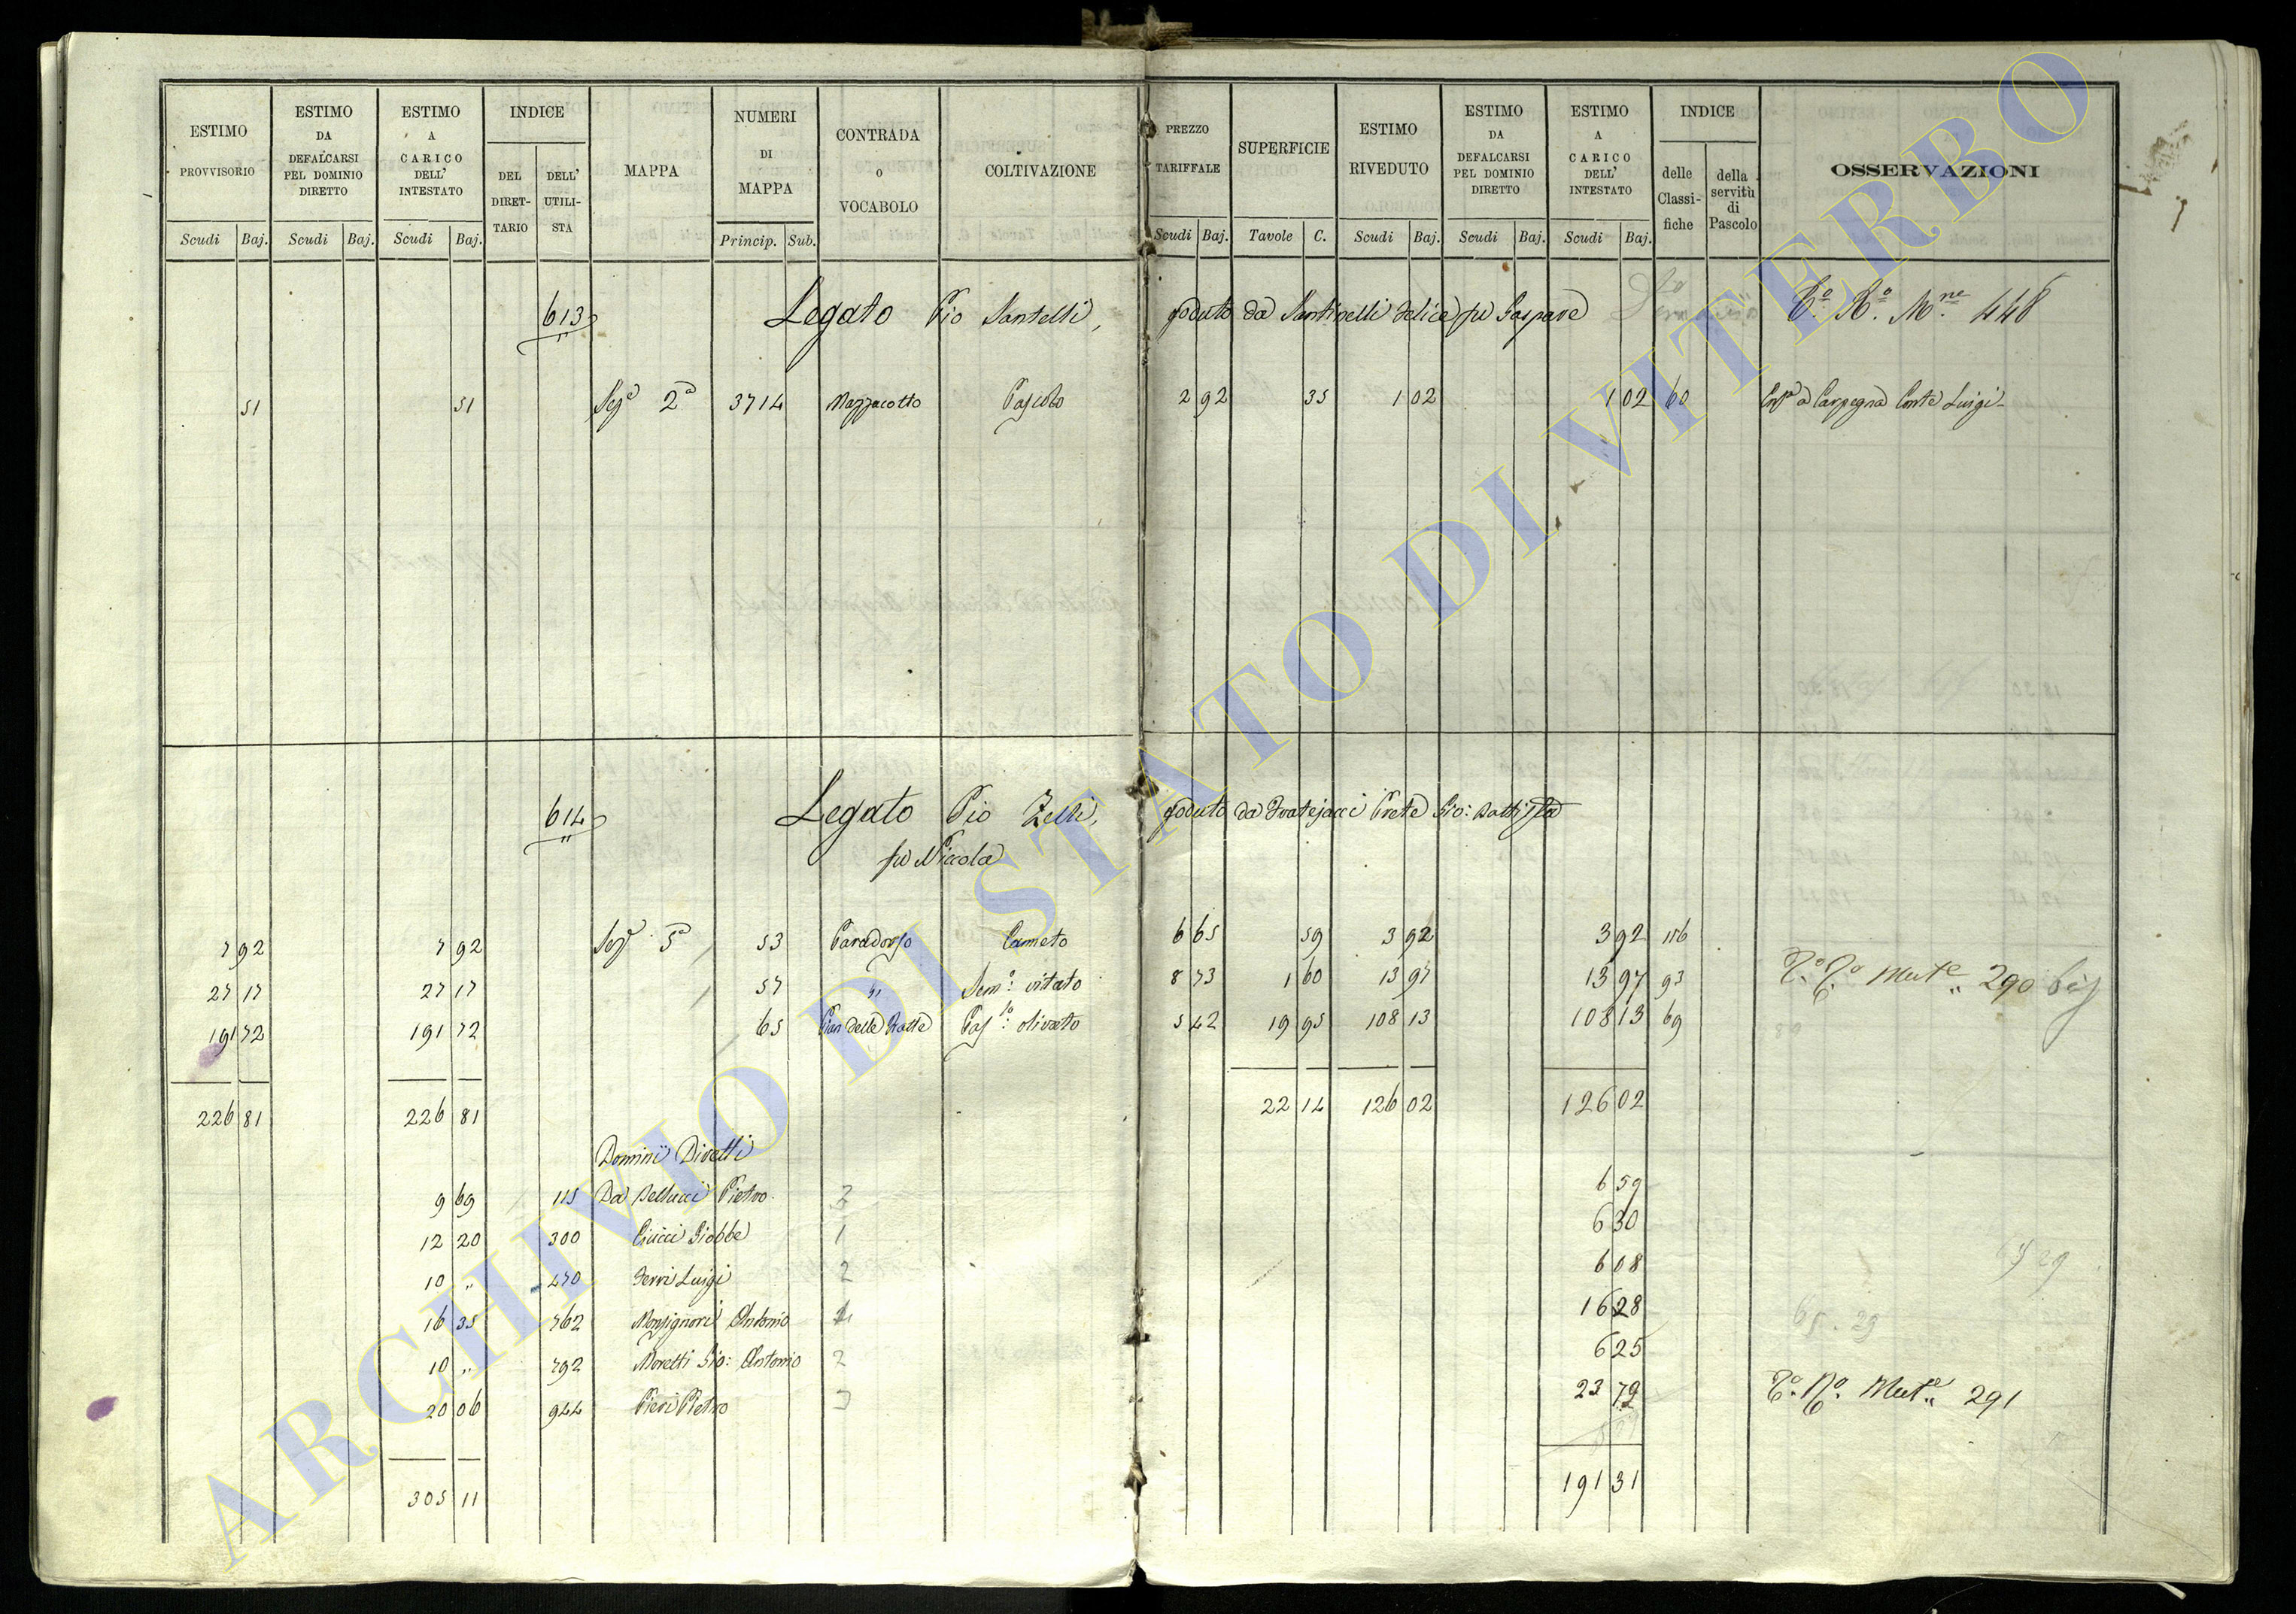 ESTIMO PROVVISORIO Scudi Baj.
ESTIMO DA DEFALCARSI PEL DOMINIO DIRETTO Scudi Baj.
ESTIMO A CARICO DELL' INTESTATO Scudi Baj.
INDICE DEL DIRET- TARIO DELL' UTILI- STA
MAPPA
NUMERI DI MAPPA Princip. Sub.
CONTRADA O VOCABOLO
COLTIVAZIONE
PREZZO TARIFFALE Scudi Baj.
SUPERFICIE Tavole C.
ESTIMO RIVEDUTO Scudi Baj.
ESTIMO DA DEFALCARSI PEL DOMINIO DIRETTO Scudi Baj.
ESTIMO A CARICO DELL' INTESTATO Scudi Baj.
INDICE delle Classi- fiche della servitù di Pascolo
OSSERVAZIONI
613 Legato Pio Santelli, goduto da Santinelli Felice fu Gaspare 448
51 51 Sezᵉ 2ª 3714 Mazzacotto Pascolo 2 92 35 1 02 1 02 60 a Carpegna Conte Luigi
614 Legato Pio Zelli, goduto da Fratejacci Prete Gio: Battista
fu Niccola
7 92 7 92 Sezᵉ 5ª 53 Paradosso Canneto 6 65 59 3 92 3 92 116
27 17 27 17 57 " Semº: vitato 8 73 1 60 13 97 13 97 93 Mutᵉ 290 bis
191 72 191 72 65 Pian delle Pasº: olivato 5 42 19 95 108 13 108 13 69
226 81 226 81 22 14 126 02 126 02
Dominii Diretti
9 69 115 Da Bellucci Pietro 2 6 59
12 20 300 Ciucci Giobbe 1 6 30
10 " 470 Ferri Luigi 2 6 08
16 35 762 Monsignori Antonio 16 28
10 " 792 Moretti Gio: Antonio 2 6 25
20 06 944 Pieri Pietro 3 23 79 Mutᵉ 291
305 11 191 31
ARCHIVIO DI STATO DI VITERBO